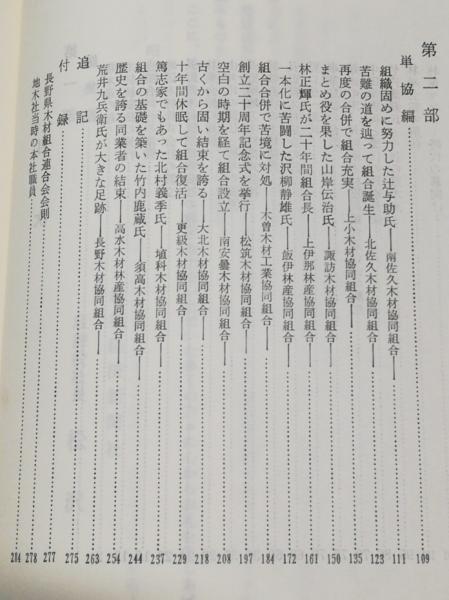 第二部
単協編……109
組織固めに努力した辻与助氏――南佐久木材協同組合――……111
苦難の道を辿って組合誕生――北佐久木材協同組合――……123
再度の合併で組合充実――上小木材協同組合――……135
まとめ役を果した山岸伝治氏――諏訪木材協同組合――……150
林正輝氏が二十年間組合長――上伊那林産協同組合――……161
一本化に苦闘した沢柳静雄氏――飯伊林産協同組合――……172
組合合併で苦境に対処――木曽木材工業協同組合――……184
創立二十周年記念式を挙行――松筑木材協同組合――……197
空白の時期を経て組合設立――南安曇木材協同組合――……208
古くから固い結束を誇る――大北木材協同組合――……218
十年間休眠して組合復活――更級木材協同組合――……229
篤志家でもあった北村義季氏――埴科木材協同組合――……237
組合の基礎を築いた竹内鹿蔵氏――須高木材協同組合――……244
歴史を誇る同業者の結束――高水木材林産協同組合――……254
荒井九兵衛氏が大きな足跡――長野木材協同組合――……263
追記……275
付録……277
長野県木材組合連合会会則……278
地木社当時の本社職員……284